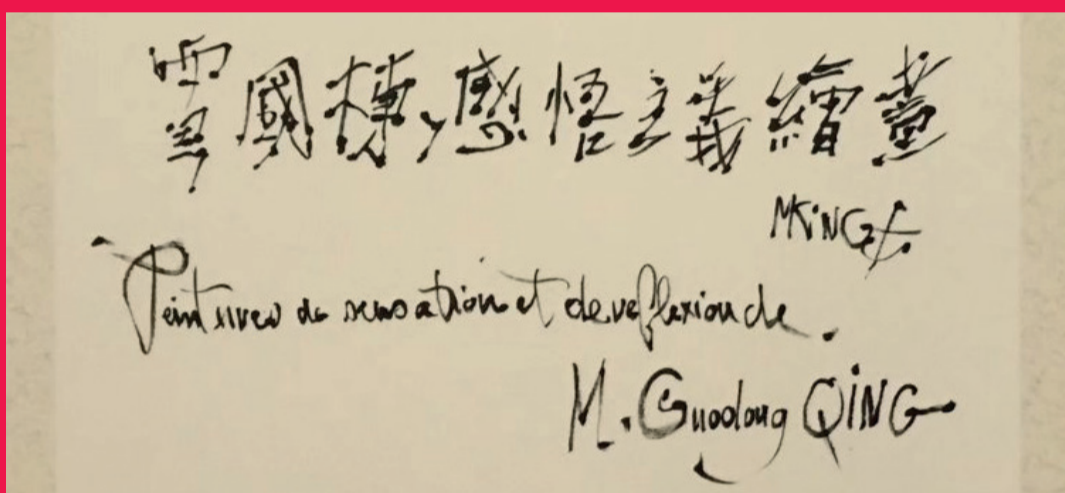 覃國棟、感悟主義繪畫
Peintures de sensation et de reflexion de.
M. Guodong QING